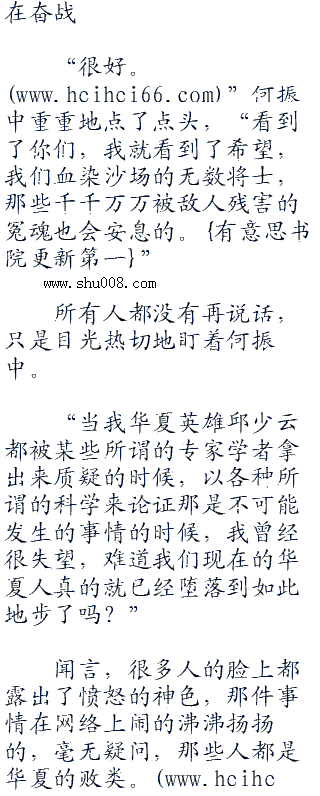 在奋战
“很好。
(www.hcihci66.com)”何振
中重重地点了点头，“看到
了你们，我就看到了希望，
我们血染沙场的无数将士，
那些千千万万被敌人残害的
冤魂也会安息的。{有意思书
院更新第一}”
www.shu008.com
所有人都没有再说话，
只是目光热切地盯着何振
中。
“当我华夏英雄邱少云
都被某些所谓的专家学者拿
出来质疑的时候，以各种所
谓的科学来论证那是不可能
发生的事情的时候，我曾经
很失望，难道我们现在的华
夏人真的就已经堕落到如此
地步了吗？”
闻言，很多人的脸上都
露出了愤怒的神色，那件事
情在网络上闹的沸沸扬扬
的，毫无疑问，那些人都是
华夏的败类。(www.hcihc